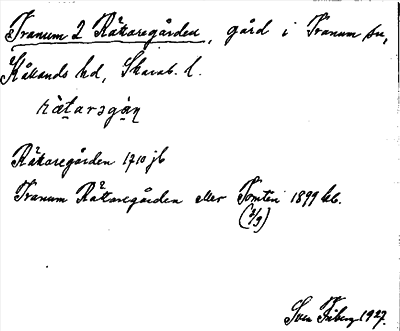 Tranum 2 Råkaregården, gård i Tranum sn,
Kållands hd, Skarab. l.
Råkaregården 1710 jb
Tranum Råkaregården eller Tomten 1899 kb.
(2/9)
Sven Friberg 1927.